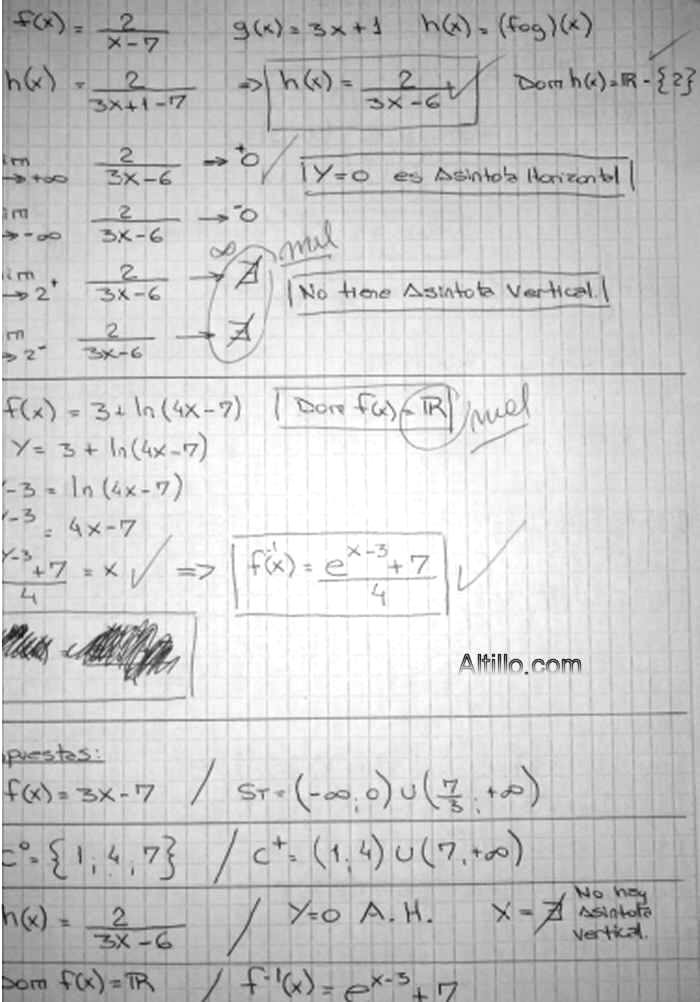 f(x) = 2/(x-7)   g(x) = 3x+1   h(x) = (fog)(x)
h(x) = 2/(3x+1-7) => h(x) = 2/(3x-6) ✓   Dom h(x) = ℝ - {2} ✓
im →+∞ 2/(3x-6) → ⁺0 ✓   Y=0 es Asintota Horizontal
im →-∞ 2/(3x-6) → ⁻0
im →2⁺ 2/(3x-6) → ∄ ∞ mal   No tiene Asintota Vertical.
m →2⁻ 2/(3x-6) → ∄
f(x) = 3 + ln(4x-7)   Dom f(x) = ℝ mal
Y = 3 + ln(4x-7)
Y-3 = ln(4x-7)
Y-3 = 4x-7
(Y-3 +7)/4 = x ✓ => f⁻¹(x) = (e^(x-3) + 7)/4 ✓
Altillo.com
puestas:
f(x) = 3x-7 / ST = (-∞; 0) ∪ (7/3; +∞)
C⁰ = {1; 4; 7} / C⁺ = (1; 4) ∪ (7; +∞)
h(x) = 2/(3x-6) / Y=0 A.H.   X = ∄ No hay Asintota Vertical.
Dom f(x) = ℝ / f⁻¹(x) = e^(x-3) + 7